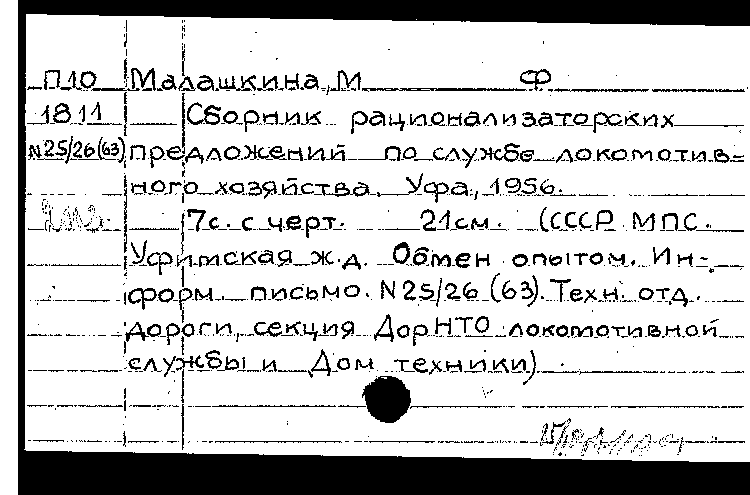 П10 Малашкина, М Ф
1811 Сборник рационализаторских
N25/26(63) предложений по службе локомотив=
ного хозяйства. Уфа, 1956.
7с. с черт. 21см. (СССР МПС.
Уфимская ж.д. Обмен опытом. Ин-
форм. письмо. N25/26 (63). Техн. отд.
дороги, секция ДорНТО локомотивной
службы и Дом техники)